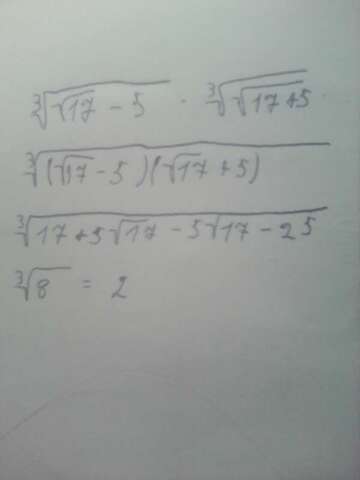 ∛(√17 - 5) · ∛(√17 + 5)
∛((√17 - 5)(√17 + 5))
∛(17 + 5√17 - 5√17 - 25)
∛8 = 2